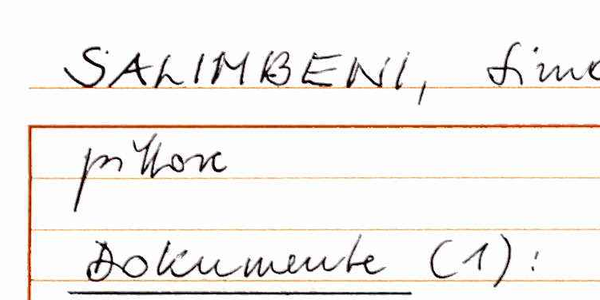 SALIMBENI, Simo
pittore
Dokumente (1):